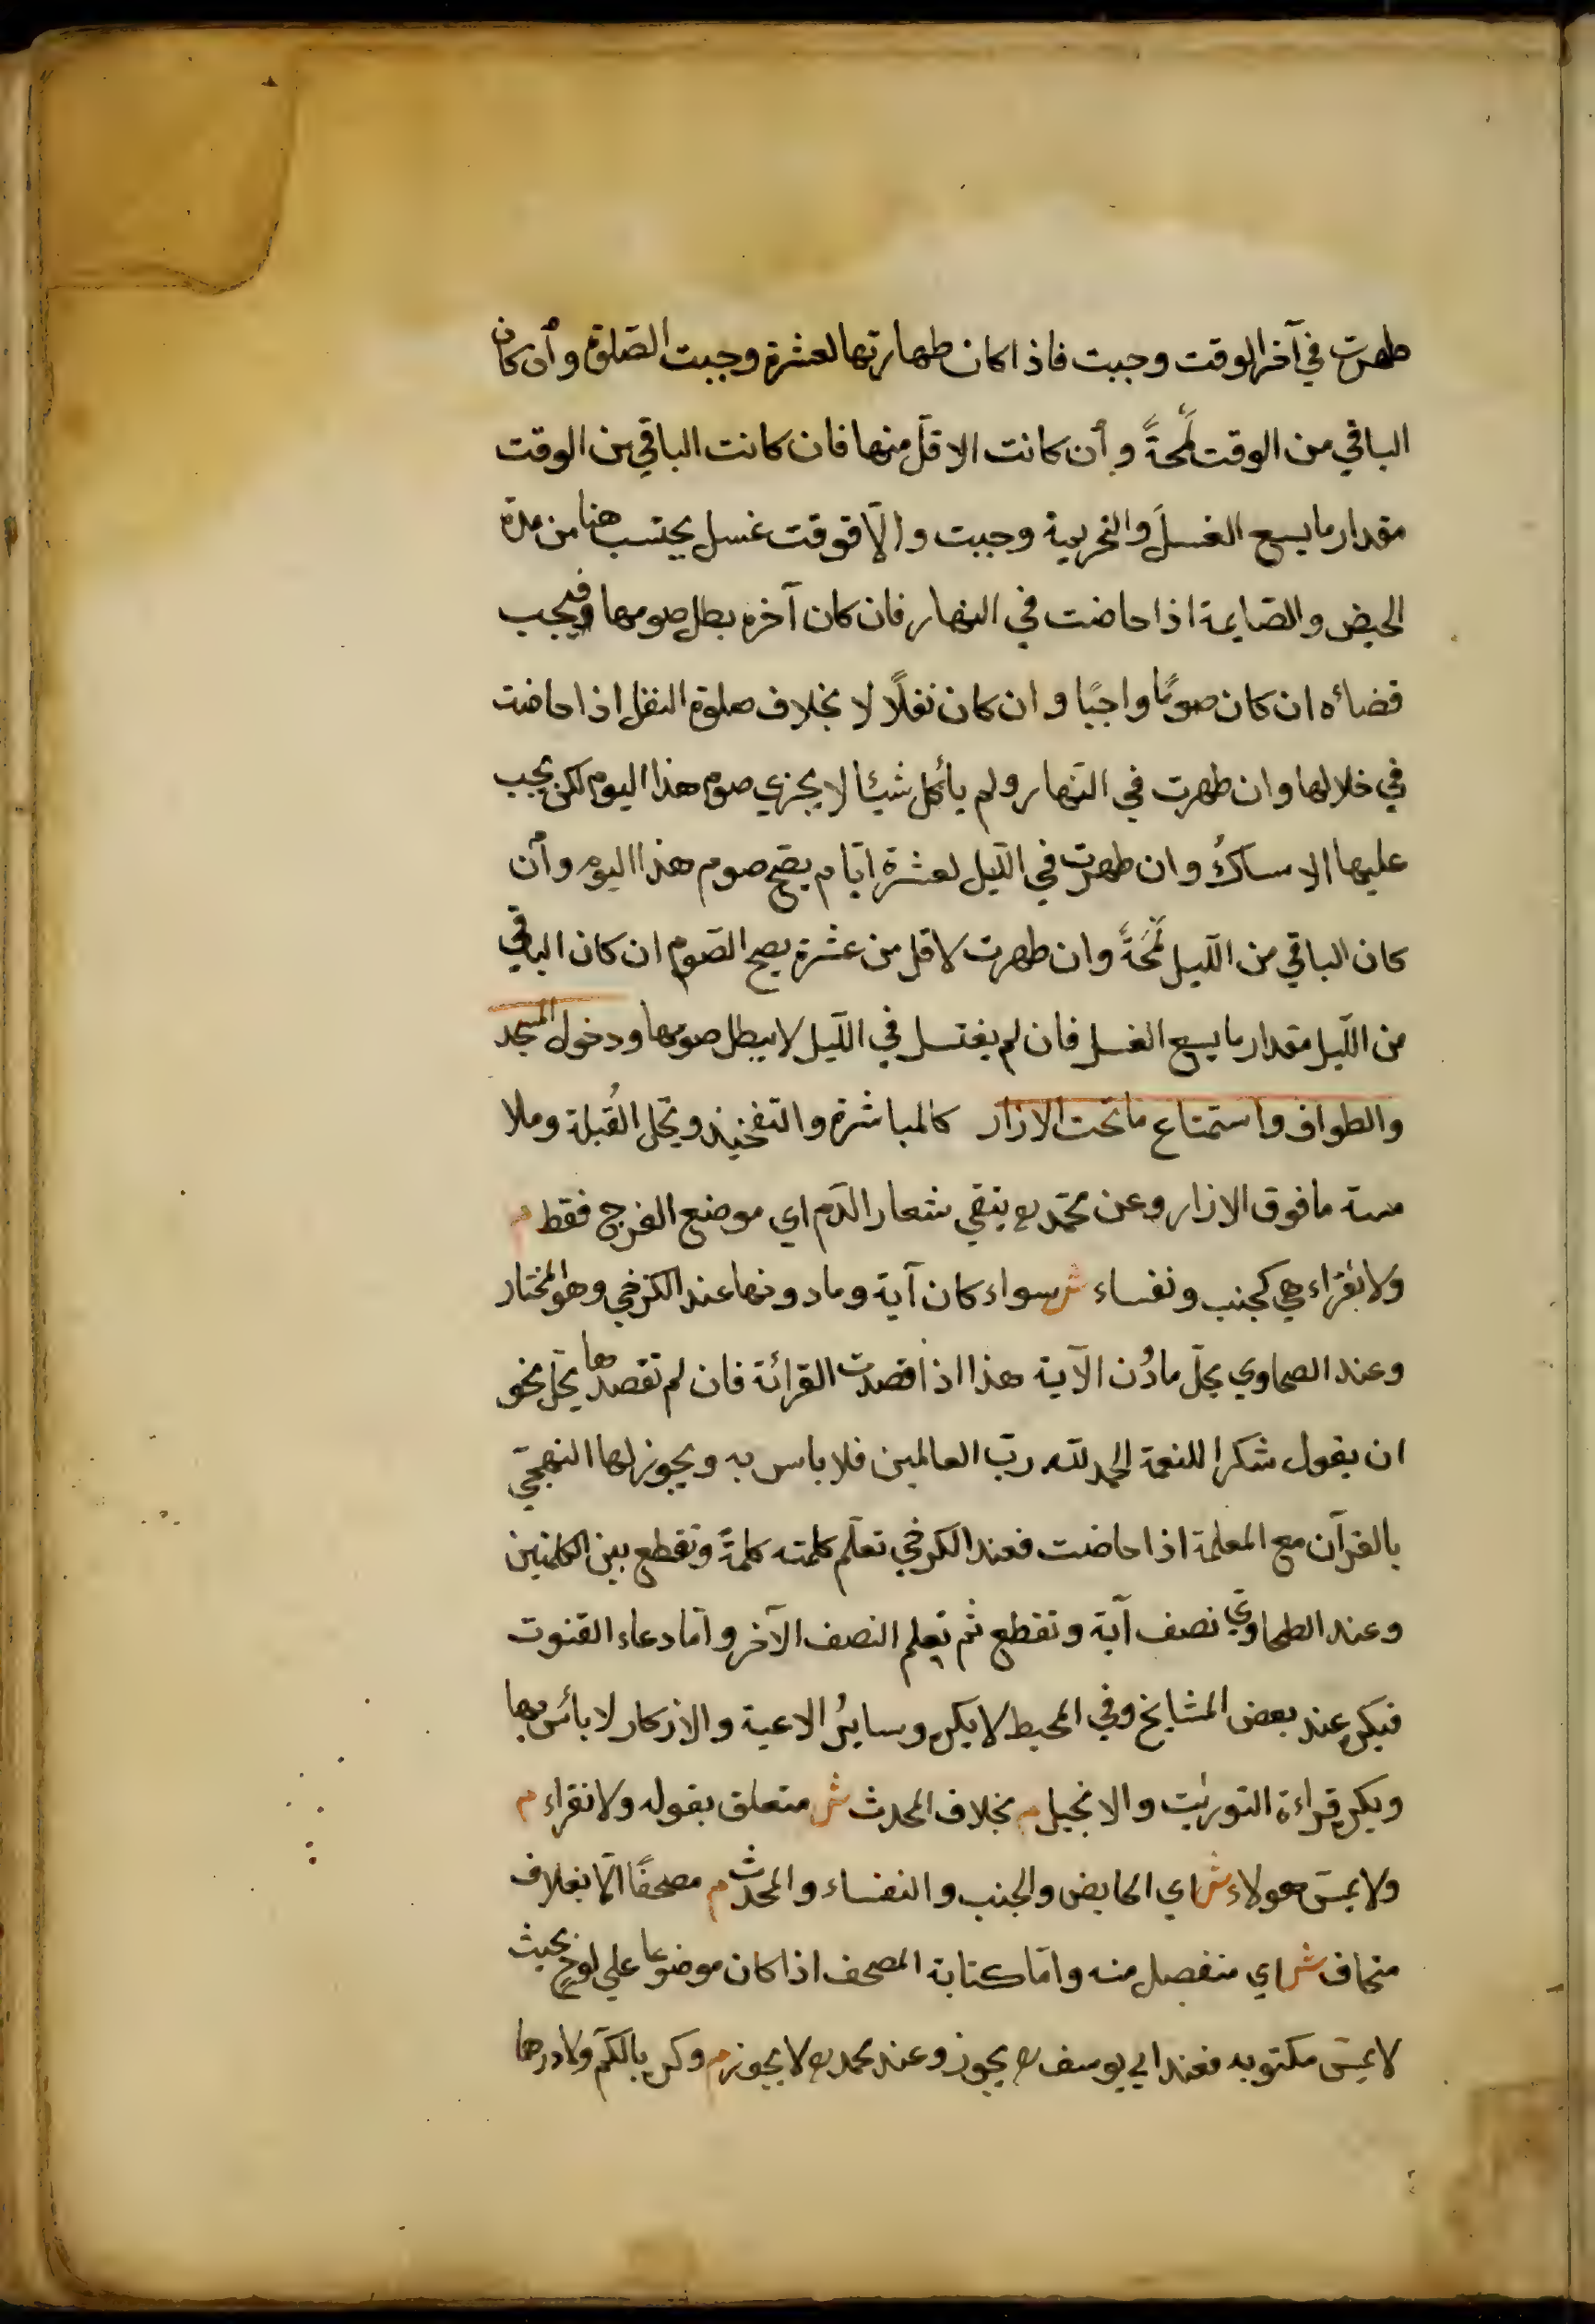 طهرت في آخر الوقت وجبت فاذا كان طهارتها لعشرة وجبت الصّلوة وأن كان
الباقي من الوقت لَمحةً وأن كانت الاقلّ منها فان كانت الباقي من الوقت
مقدار ما يسع الغسلَ والتحريمة وجبت والّا فوقت غسل يحتسب هنا من مدة
الحيض والصّايمة اذا حاضت في النهار فان كان آخره بطل صومها فيجب
قضائه ان كان صومًا واجبًا وان كان نفلًا لا بخلاف صلوة النفل اذا حاضت
في خلالها وان طهرت في النّهار ولم يأكل شيئا لا يجزي صوم هذا اليوم لكن يجب
عليها الامساكُ وان طهرت في اللّيل لعشرة ايّام يصّح صوم هذا اليوم وأن
كان الباقي من اللّيل لَمْحَةً وان طهرت لاقل من عشرة يصح الصّوم ان كان الباقي
من اللّيل مقدار ما يسع الغسل فان لم يغتسل في اللّيل لا يبطل صومها ودخول المسجد
والطواف واستمتاع ما تحت الازار كالمباشرة والتفخيذ ويحّل القُبلة وملا
مسة ما فوق الازار وعن محمّد رح يتقي شعار الدّم اي موضع الفرج فقط م
ولا يقرّاء هي كجنب ونفساء ش سواء كان آية وما دونها عند الكرخي وهو المختار
وعند الصحاوي يحلّ مادُن الآية هذا اذا قصدت القرائة فان لم تقصدها يحّل نحو
ان يقول شكرا للنعمة الحمد لله ربّ العالمين فلا باس به ويجوز لها التهجّي
بالقرآن مع المعلمة اذا حاضت فعند الكرخي تعلّم كلمته كلمةً وتقطع بين الكلمتين
وعند الطحاوي نصف آية وتقطع ثم يعلم النصف الآخر وامّا دعاء القنوت
فيكره عند بعض المشايخ وفي المحيط لا يكره وسايرُ الاعية والاذكار لا بأس بها
ويكره قراءة التوريٰت والانجيل م بخلاف المحدث ش متعلق بقوله ولا تقراء م
ولا يمسّ هولاء ش اي الحايض والجنب والنفساء والمحدث م مصحفًا الّا بغلاف
متجاف ش اي منفصل منه وامّا كتابة المصحف اذا كان موضوعا علي لوح بحيث
لا يمسّ مكتوبه فعند ابي يوسف رح يجوز وعند محمد رح لا يجوز م وكره بالكمّ ولا درهما